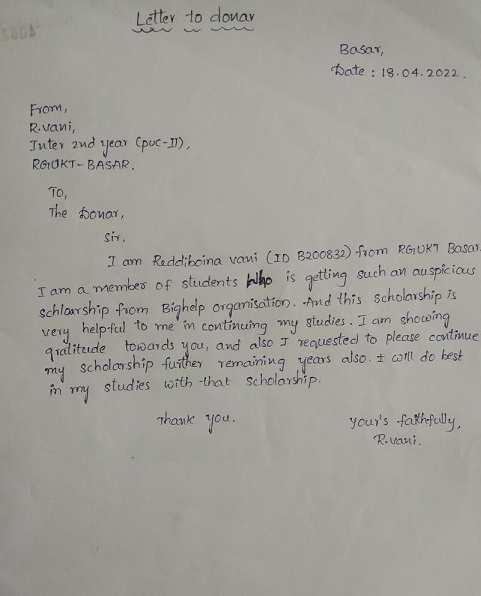 Letter to donar
Basar,
Date : 18.04.2022.
From,
R.vani,
Inter 2nd year (puc-II),
RGUKT- BASAR.
To,
The Donar,
Sir,
I am Reddiboina vani (ID B200832) from RGUKT Basar.
I am a member of students who is getting such an auspicious
schloarship from Bighelp organisation. And this scholarship is
very helpful to me in continuing my studies. I am showing
gratitude towards you, and also I requested to please continue
my scholarship further remaining years also. I will do best
in my studies with that scholarship.
Thank you.
Your's faithfully,
R.vani.